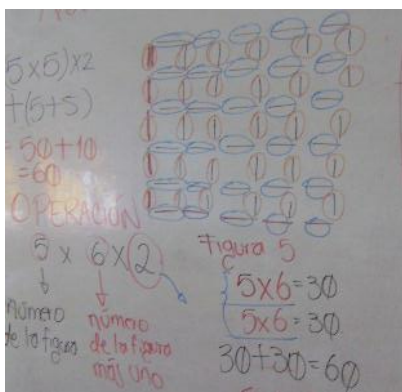 5×5)×2
+(5+5)
= 50+10
=60
OPERACIÓN
5 × 6 × 2
número
de la figura
número
de la figura
más uno
Figura 5
5×6=30
5×6=30
30+30=60